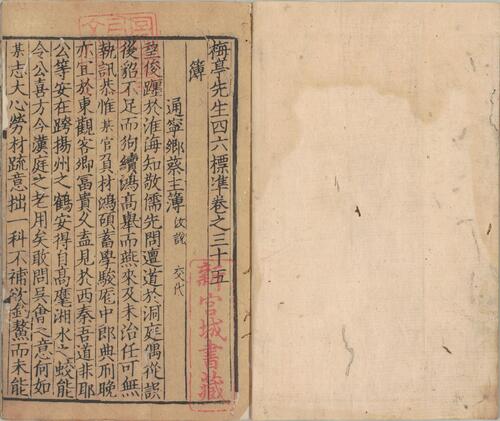 梅亭先生四六標準卷之三十五
簿
通寧鄉蔡主簿 汝說 交代
望俊躔於淮海知敬儒先問邅道於洞庭偶從誤
後貂不足而狗續鴻高舉而燕來及未治任可無
執訊恭惟某官負材鴻碩蓄學駿厖中郎典刑晚
亦宜於東觀客卿富貴久盍見於西秦吾道非耶
公等安在跨揚州之鶴安得自高麾湘水之蛟能
令公喜方今漢庭之老用矣敢問具會之意何如
某志大心勞材疏意拙一科不補欲釣鰲而未能
新宮城書藏